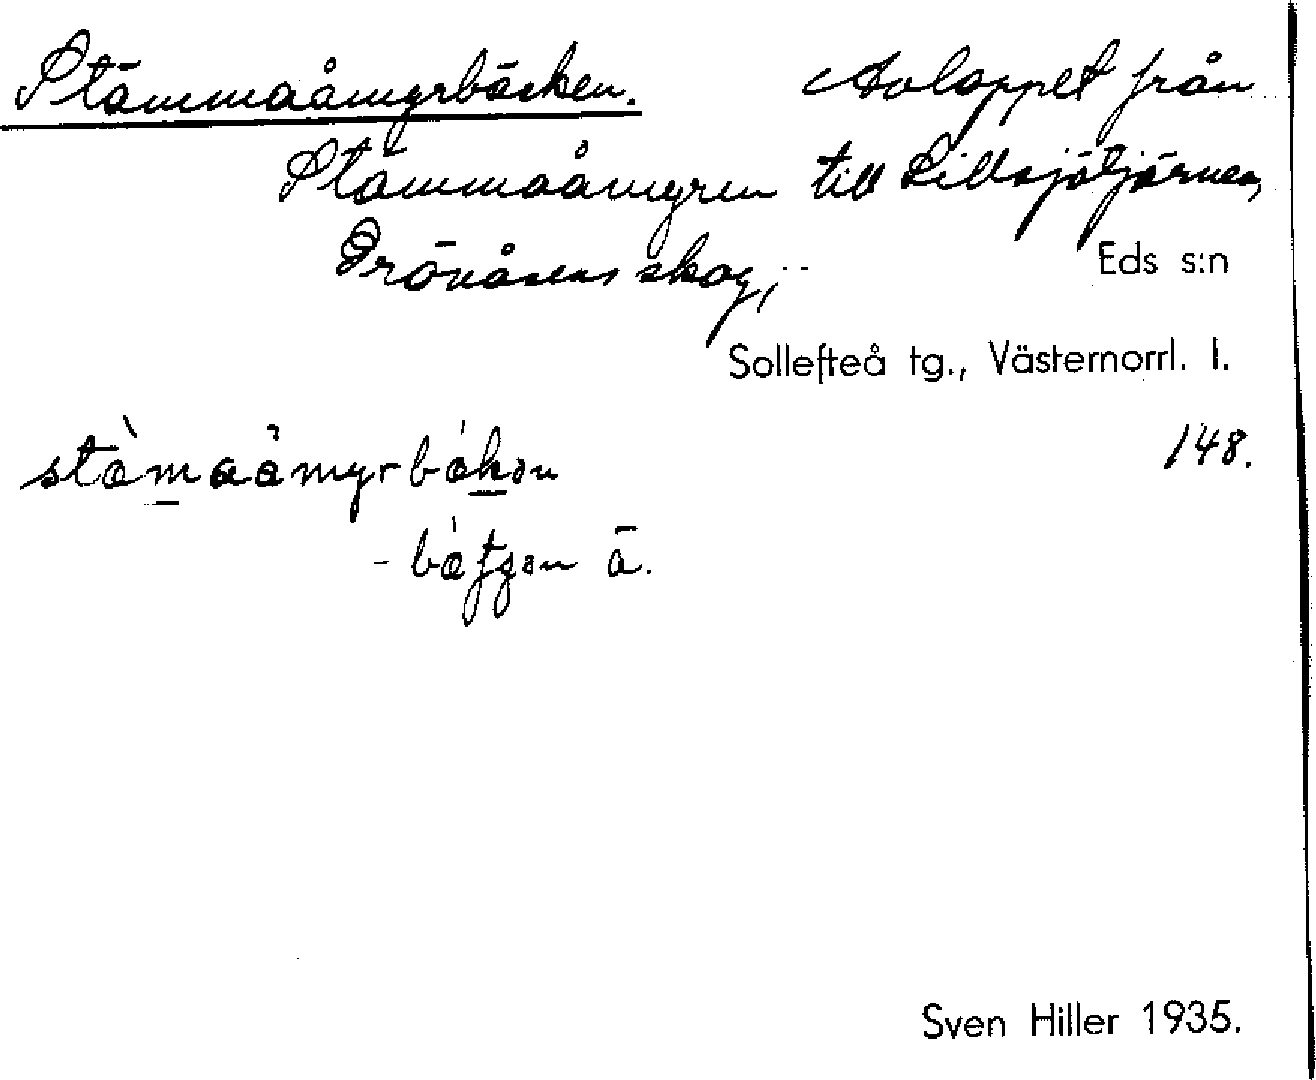 Stämmaåmyrbäcken. Avloppet från
Stämmaåmyren till Lillsjötjärnen,
Grönåsens skog,
Eds s:n
Sollefteå tg., Västernorrl. l.
148.
Sven Hiller 1935.